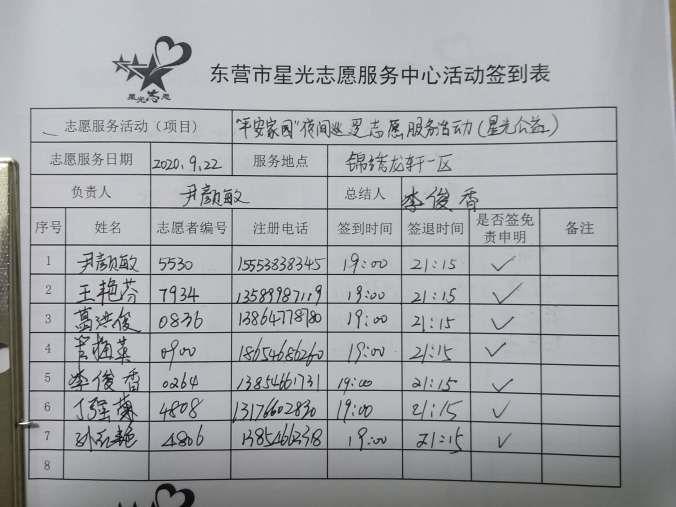 星光志愿
东营市星光志愿服务中心活动签到表
志愿服务活动（项目） "平安家园"夜间巡逻志愿服务活动(星光公益)
志愿服务日期 2020.9.22 服务地点 锦绣龙轩一区
负责人 尹颜敏 总结人 李俊香
序号 姓名 志愿者编号 注册电话 签到时间 签退时间 是否签免责申明 备注
1 尹颜敏 5530 15553838345 19:00 21:15 ✓
2 王艳芬 7934 13589987119 19:00 21:15 ✓
3 葛洪俊 0836 13864778780 19:00 21:15 ✓
4 0900 18654686260 19:00 21:15 ✓
5 李俊香 0264 13854661731 19:00 21:15 ✓
6 4808 13176602830 19:00 21:15 ✓
7 4806 19:00 21:15 ✓
8